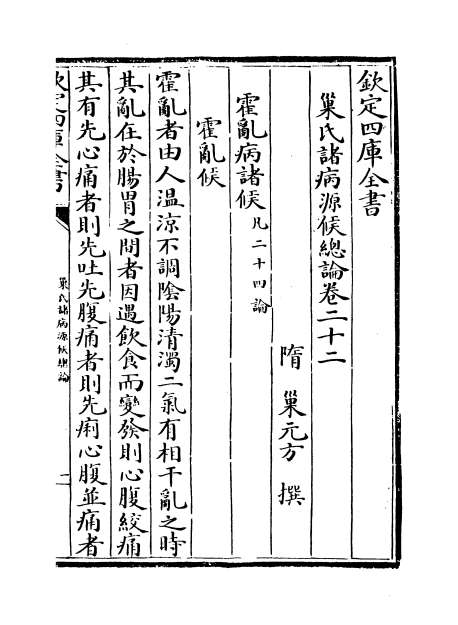 欽定四庫全書
巢氏諸病源候總論卷二十二
隋 巢元方 撰
霍亂病諸候凡二十四論
霍亂候
霍亂者由人温涼不調陰陽清濁二氣有相干亂之時
其亂在於腸胃之間者因遇飲食而變發則心腹絞痛
其有先心痛者則先吐先腹痛者則先痢心腹並痛者
欽定四庫全書
巢氏諸病源候總論